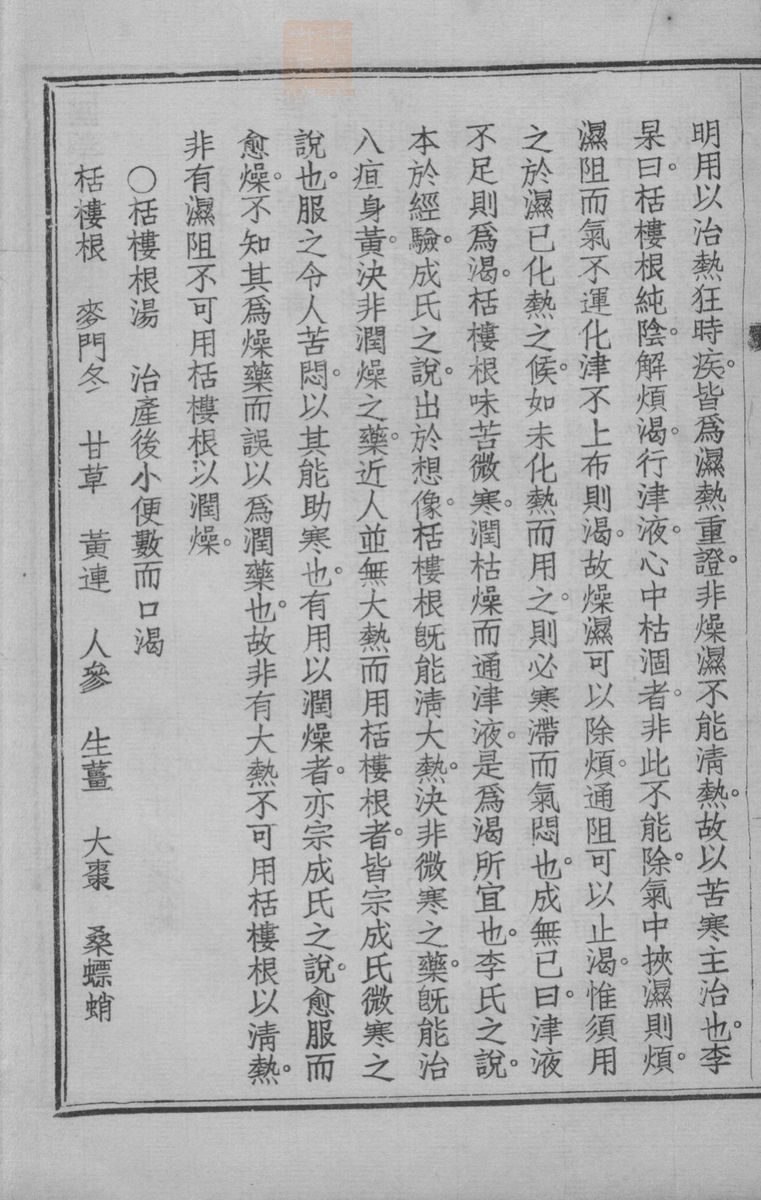 明用以治熱狂時疾。皆爲濕熱重證。非燥濕不能清熱。故以苦寒主治也。李
杲曰。栝樓根純陰。解煩渴。行津液。心中枯涸者。非此不能除。氣中挾濕則煩。
濕阻而氣不運化津不上布則渴。故燥濕可以除煩。通阻可以止渴。惟須用
之於濕已化熱之候。如未化熱而用之。則必寒滯而氣悶也。成無已曰。津液
不足則爲渴。栝樓根味苦微寒。潤枯燥而通津液。是爲渴所宜也。李氏之說。
本於經驗。成氏之說。出於想像。栝樓根旣能淸大熱。決非微寒之藥。旣能治
八疸身黃。決非潤燥之藥。近人並無大熱而用栝樓根者。皆宗成氏微寒之
說也。服之令人苦悶。以其能助寒也。有用以潤燥者。亦宗成氏之說。愈服而
愈燥。不知其爲燥藥而誤以爲潤藥也。故非有大熱不可用栝樓根以淸熱。
非有濕阻不可用栝樓根以潤燥。
○栝樓根湯　治產後小便數而口渴
栝樓根　麥門冬　甘草　黃連　人參　生薑　大棗　桑螵蛸